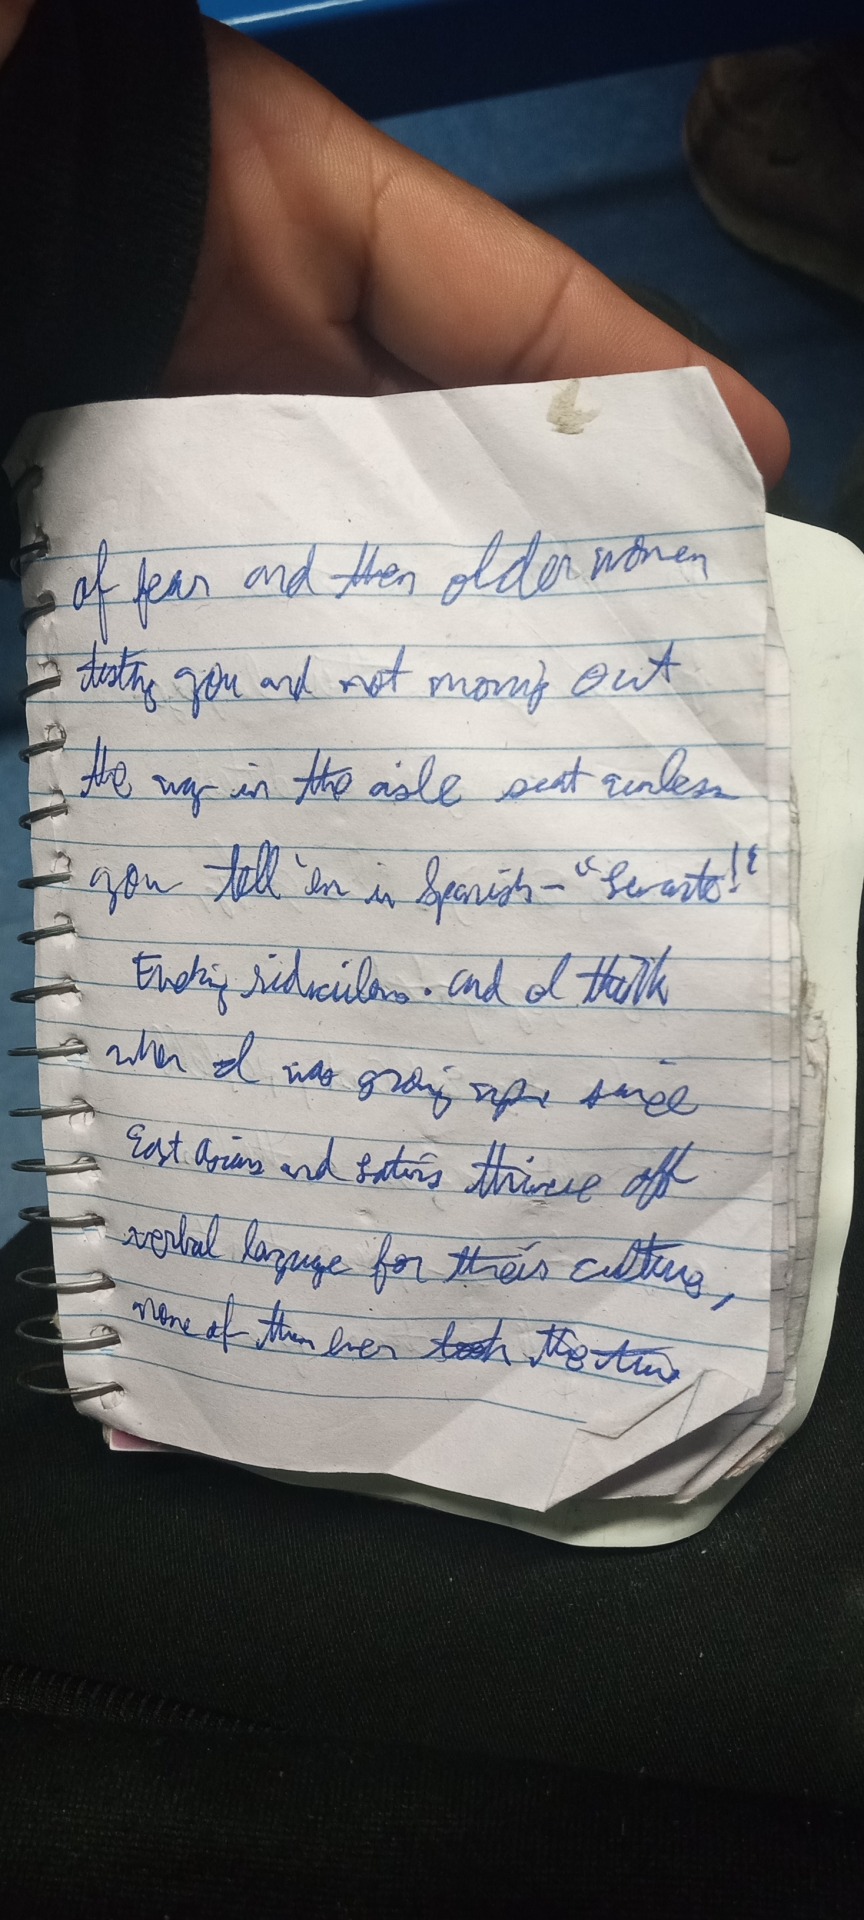 of fear and then older women
testing you and not moving out
the way in the aisle seat unless
you tell 'em in Spanish - "Levanto!"
ridiculous. and I think
when I was growing up since
East Asians and Latins thrive off
verbal language for their culture,
none of them ever took the time